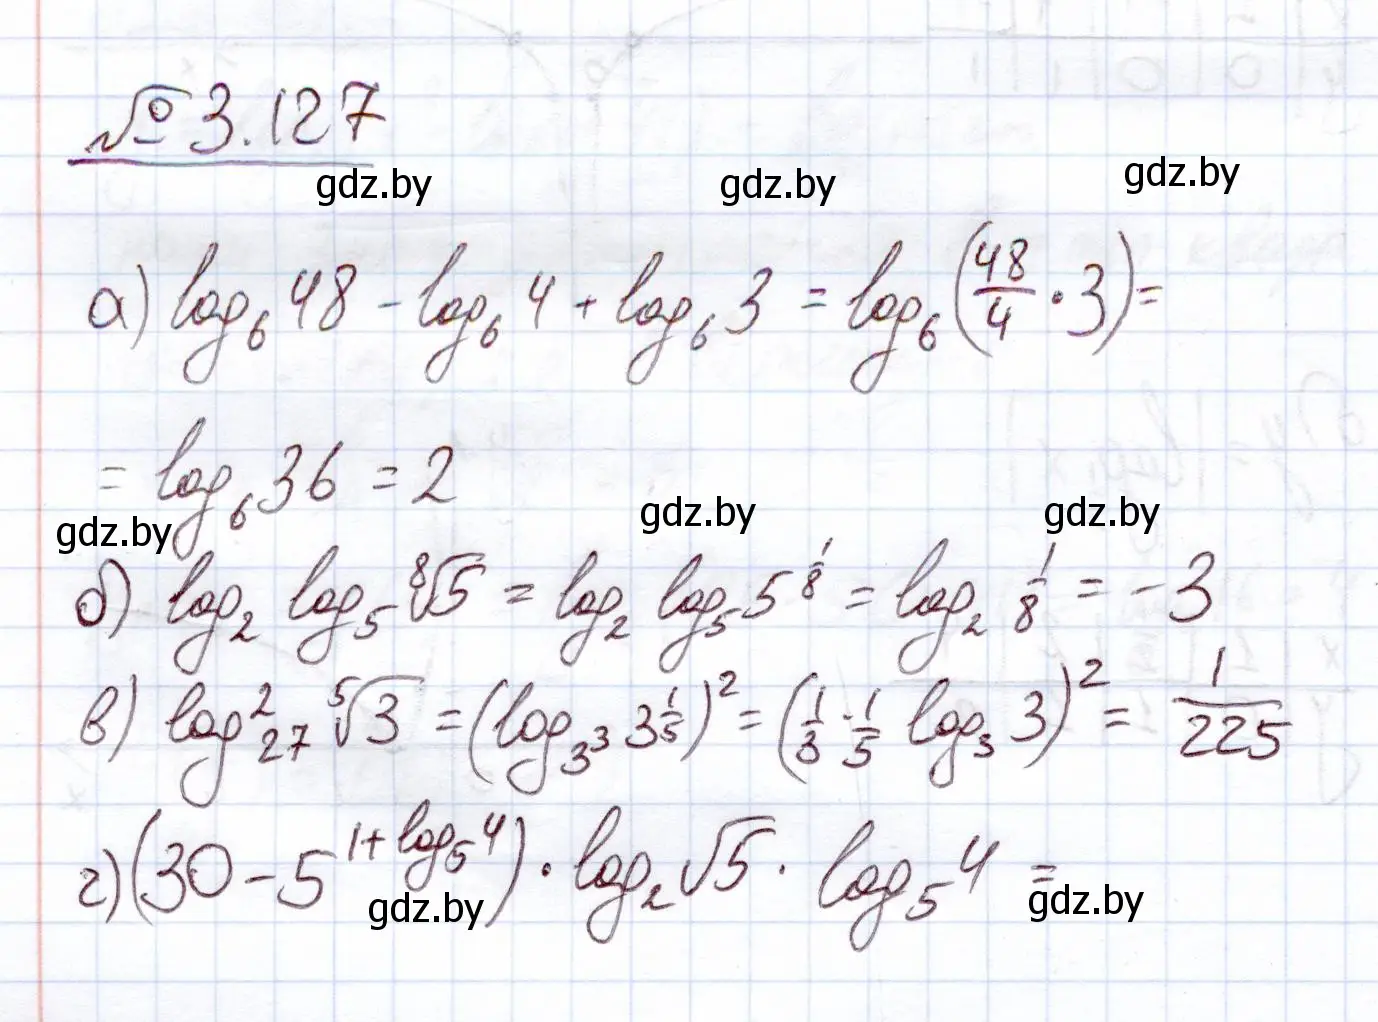 № 3.127
gdz.by gdz.by gdz.by
а) log₆ 48 - log₆ 4 + log₆ 3 = log₆ (48/4 · 3) =
= log₆ 36 = 2
gdz.by gdz.by gdz.by
б) log₂ log₅ ⁸√5 = log₂ log₅ 5^(1/8) = log₂ 1/8 = -3
в) log²₂₇ ⁵√3 = (log₃³ 3^(1/5))² = (1/3 · 1/5 log₃ 3)² = 1/225
г) (30 - 5^(1 + log₅ 4)) · log₂ √5 · log₅ 4 =
gdz.by gdz.by